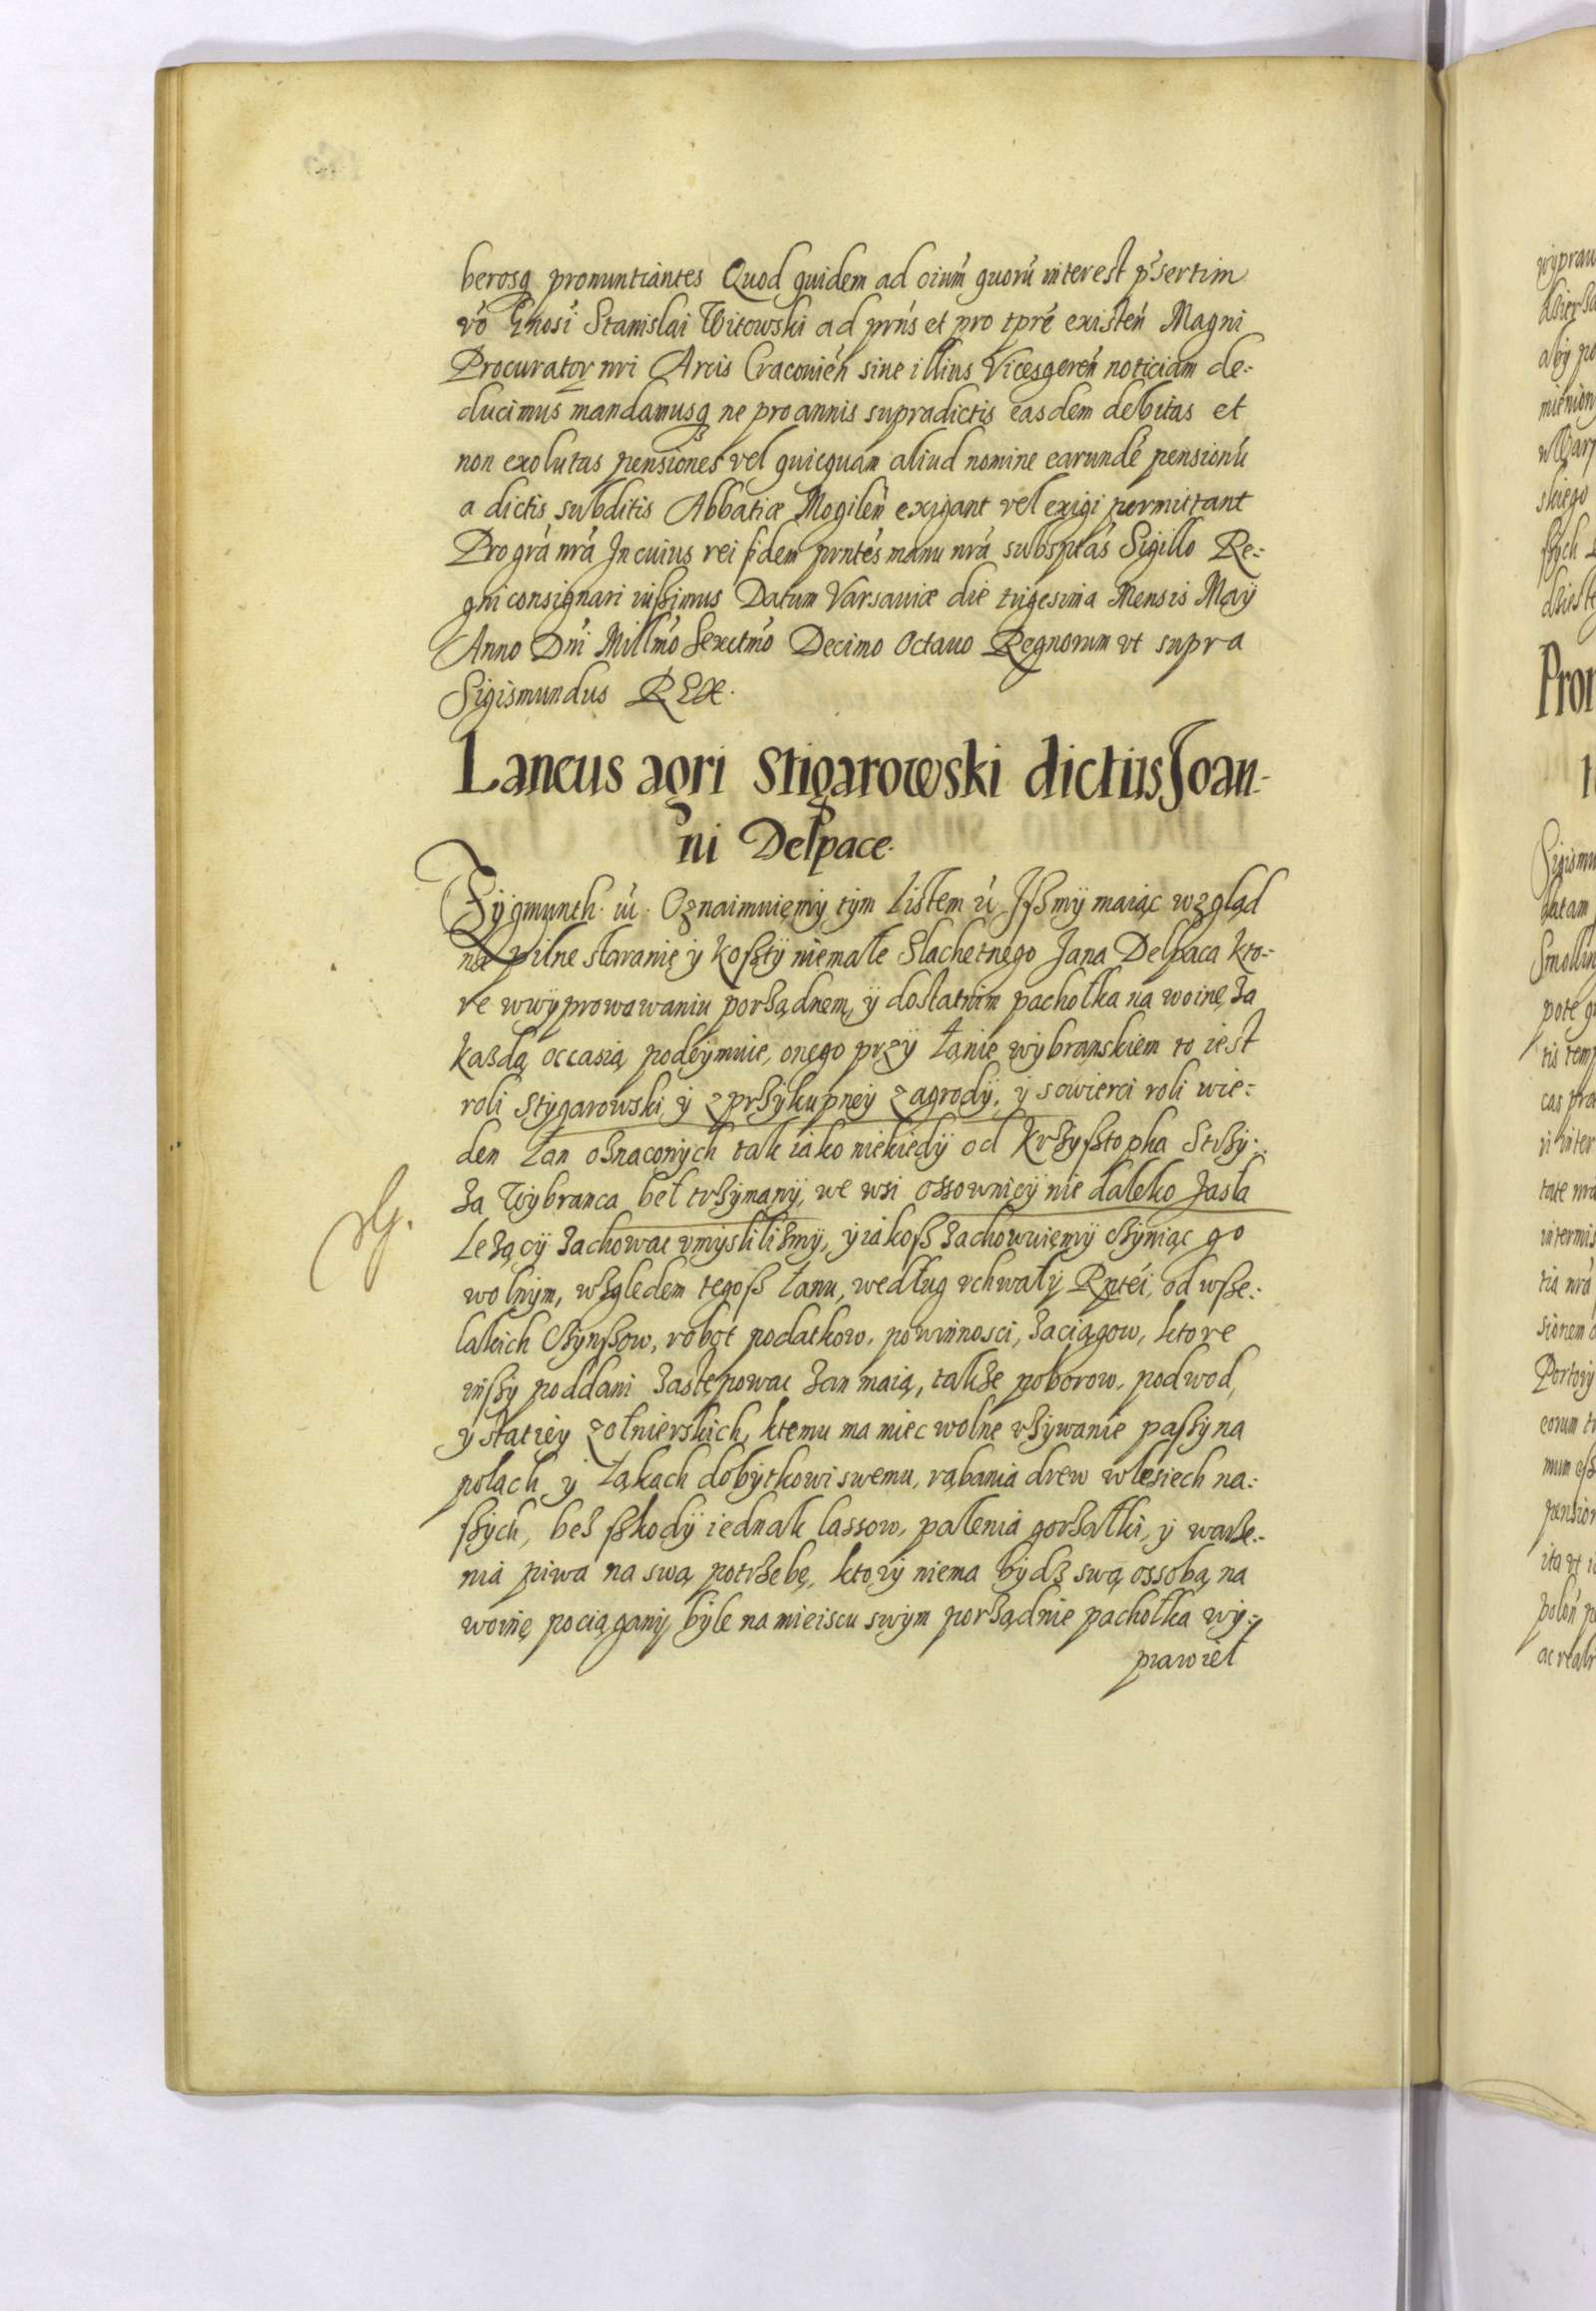 berosq pronuntiantes Quod quidem ad oium quorū interest p̄sertim
vō Gnosi Stanislai Witowski ad prńs et pro tpre existeń Magni
Procurator nri Arcis Cracovień sine illius Vicesgereń noticiam de=
ducimus mandamusq ne pro annis supradictis easdem debitas et
non exolutas pensiones vel quicquam aliud nomine earundē pensionū
a dictis subditis Abbatiæ Mogileń exigant vel exigi permittant
Pro grā nrā In cuius rei fidem prntes manu nrā subsptas Sigillo Re=
gni consignari iussimus Datum Varsaviæ die trigesima Mensis Maÿ
Anno Dńi Millmo Sexctmo Decimo Octavo Regnorum vt supra
Sigismundus REX.
Lancus agri Stigarowski dictus Joan-
ni Delpace.
Zÿgmunth. ... Oznaimuięmÿ tÿm Listem ... Jßmÿ maiąc wzgląd
na pilne staranię ÿ koßtÿ niemałe Slachetnego Jana Delpaca kto=
re wwÿprowawaniu porządnem, ÿ dostatnim pachołka na woinę za
każdą occasią podeÿmuie, onego przÿ Łanie wÿbranskiem to iest
roli Stÿgarowski ÿ z przÿkupneÿ zagrodÿ, ÿ sowierci roli wie=
den Łan oznaconÿch tak iako niekiedÿ od Krzÿßtopha Strzÿ=
za Wÿbranca beł trzÿmanÿ, we wsi ossownicÿ nie daleko Jasła
Leżącÿ zachować vmÿslilizmÿ, ÿ iakoß zachowuięmÿ czÿniąc go
wolnÿm, wzgledem tegoß Łanu, według vchwałÿ Rptei, od wße=
lakich Czÿnßow, robot podatkow, powinnosci, zaciągow, ktore
inßÿ poddani zastępowac zan maią, także poborow, podwod,
ÿ stacieÿ zołnierskich, ktemu ma miec wolne vżÿwanie paßÿ na
polach ÿ Łąkach dobÿtkowi swemu, rąbania drew wlesiech na=
ßÿch, bez ßkodÿ iednak lassow, palenia gorzałki, ÿ warze=
nia piwa na swą potrzebę, ktorÿ niema bÿdz swą ossobą na
woinę pociąganÿ, bÿle na mieiscu swÿm porządnie pachołka wÿ=
prawieł